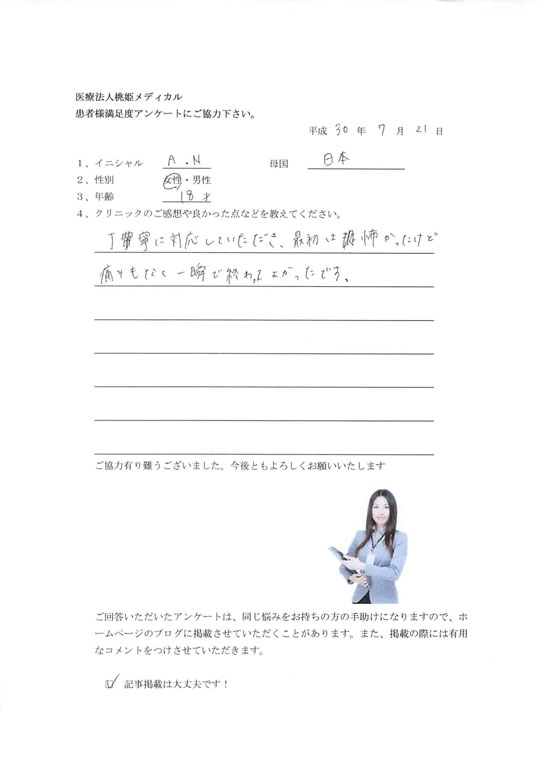 医療法人桃姫メディカル
患者様満足度アンケートにご協力下さい。
平成 30 年 7 月 21 日
1、イニシャル A.N 母国 日本
2、性別 女性・男性
3、年齢 18才
4、クリニックのご感想や良かった点などを教えてください。
丁寧に対応していただき、最初は怖かったけど
痛みもなく一瞬で終わってよかったです。
ご協力有り難うございました。今後ともよろしくお願いいたします
ご回答いただいたアンケートは、同じ悩みをお持ちの方の手助けになりますので、ホ
ームページのブログに掲載させていただくことがあります。また、掲載の際には有用
なコメントをつけさせていただきます。
☑ 記事掲載は大丈夫です！